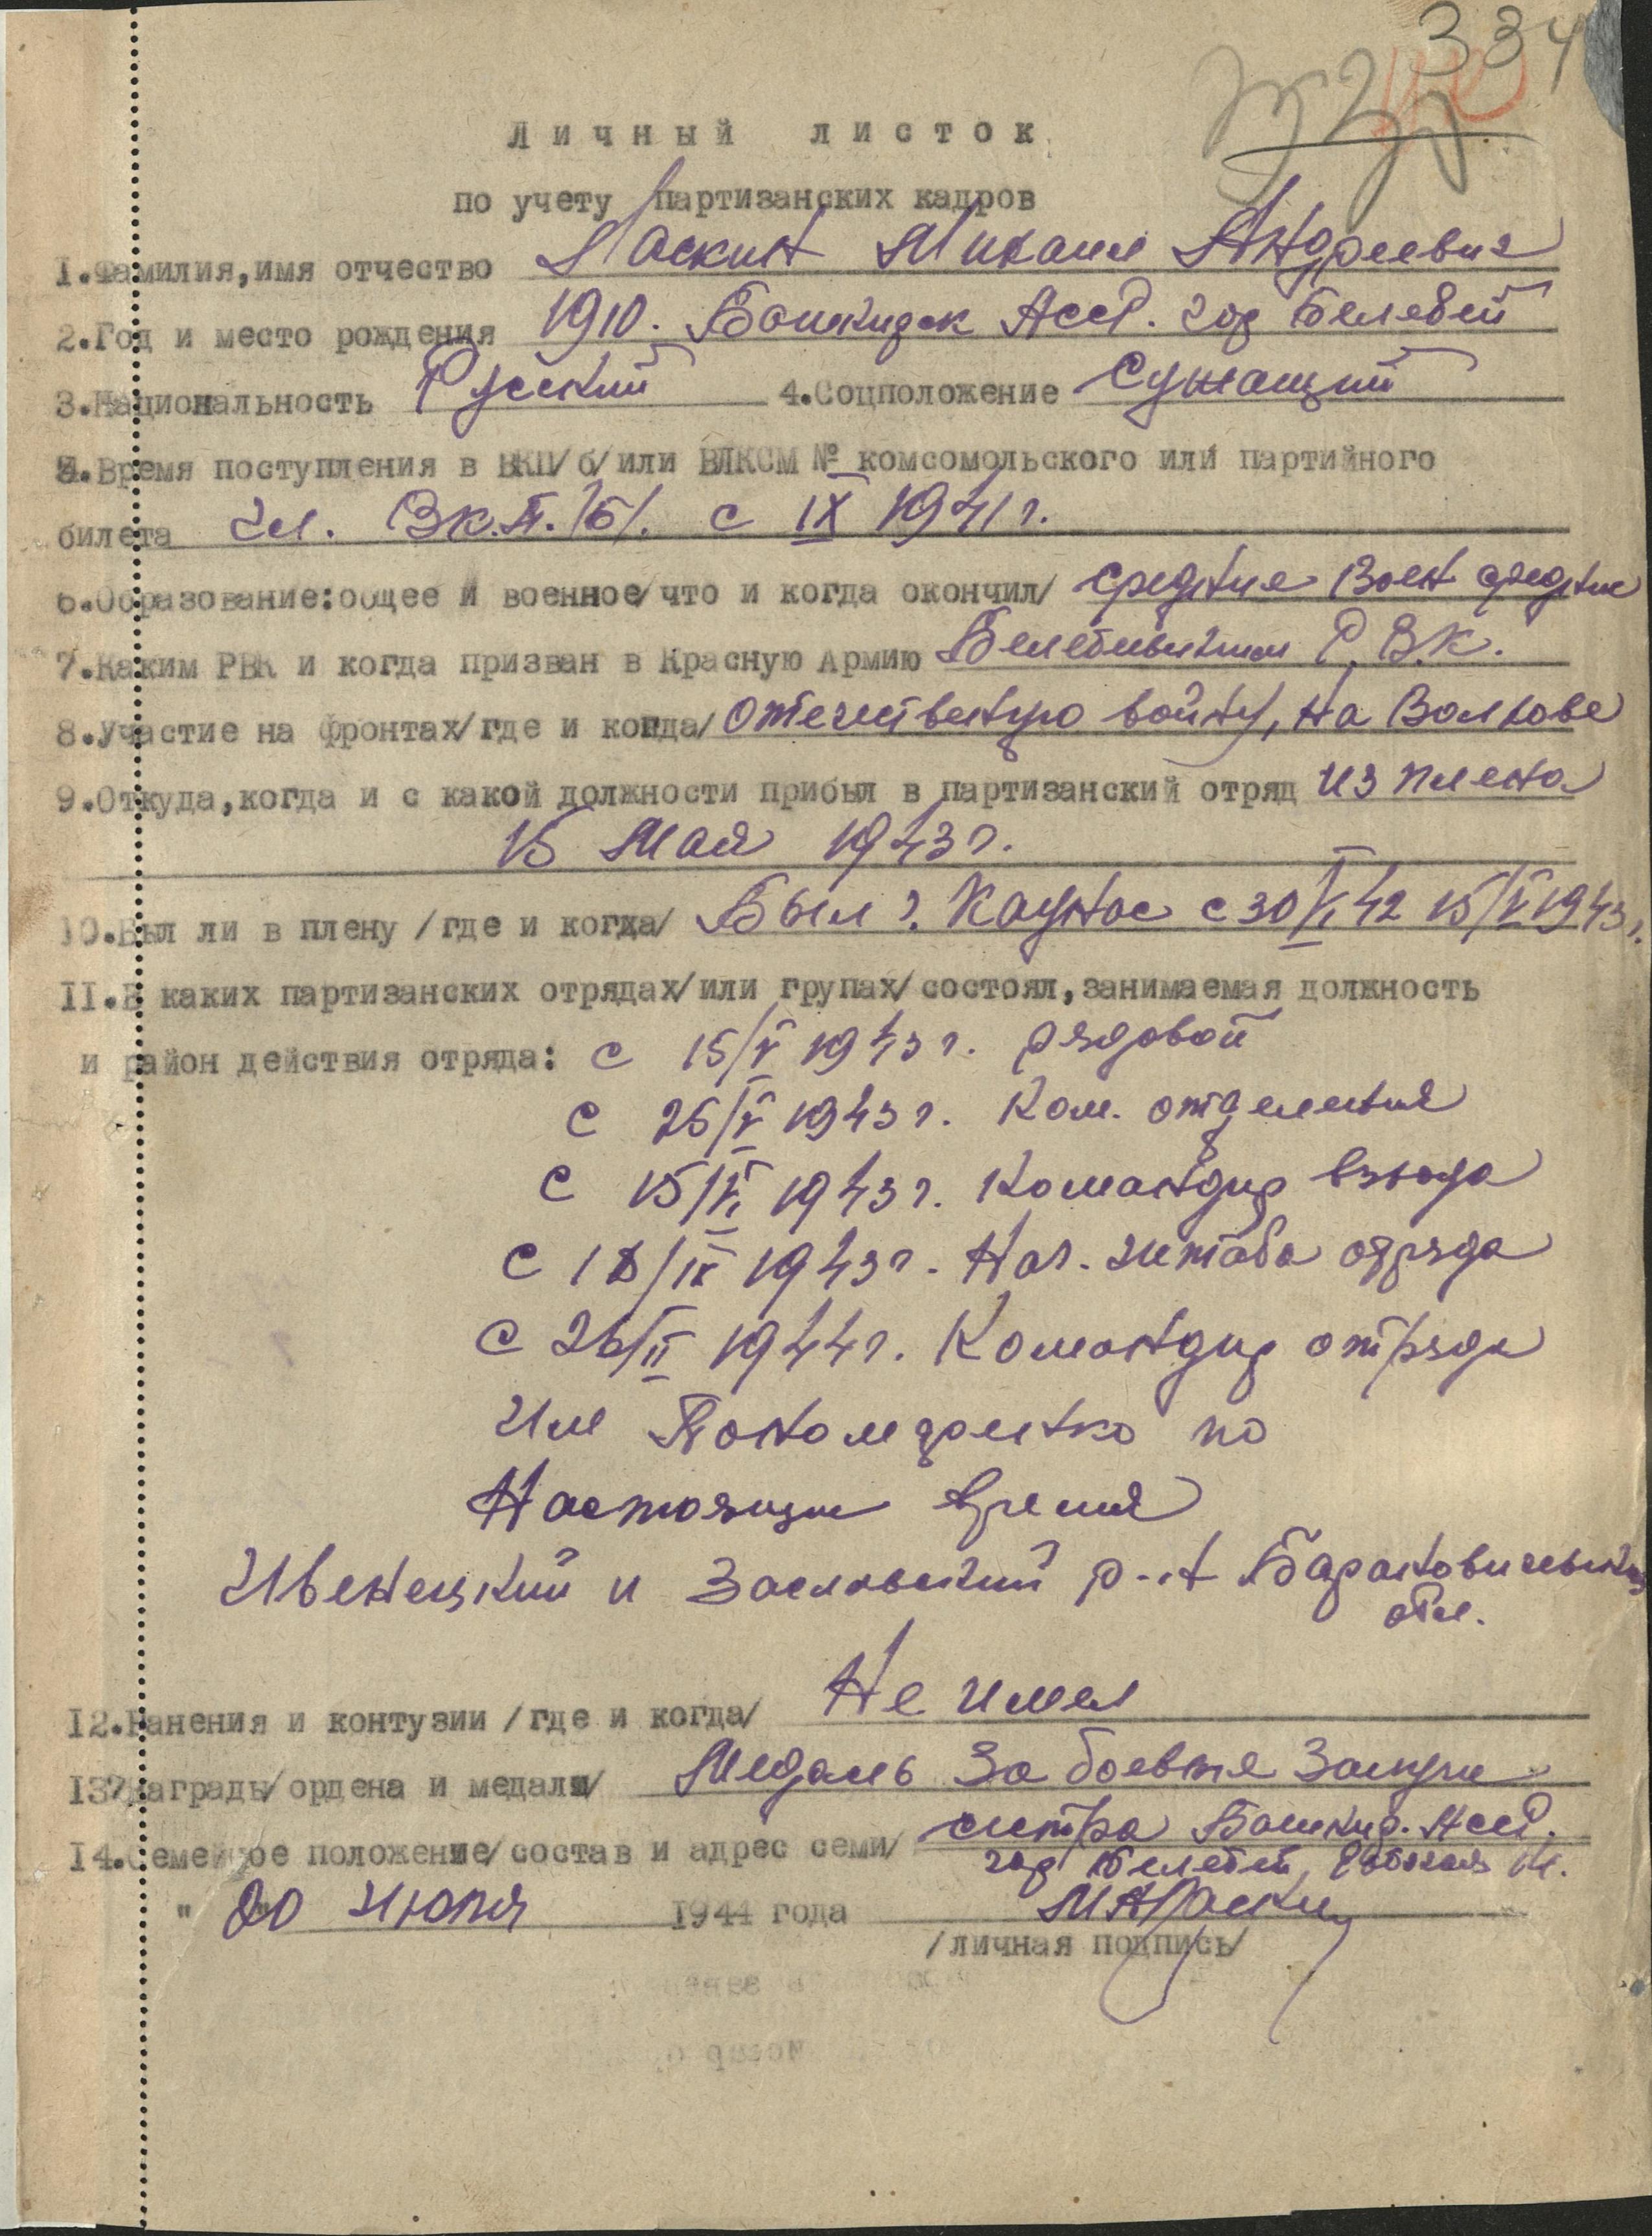 334
Личный листок
по учету партизанских кадров
1.Фамилия,имя отчество Ласкин Михаил Андреевич
2.Год и место рождения 1910. Башкирск АССР. гор Белебей
3.Национальность Русский 4.Соцположение Служащий
5.Время поступления в ВКП/б/или ВЛКСМ № комсомольского или партийного
билета чл. ВК.П./б/. с IX 1941 г.
6.Образование:общее и военное/что и когда окончил/ средние Воен средние
7.Каким РВК и когда призван в Красную Армию Р.В.К.
8.Участие на фронтах/где и когда/ Отечественную войну, на Волхове
9.Откуда,когда и с какой должности прибыл в партизанский отряд из плена
15 Мая 1943 г.
10.Был ли в плену /где и когда/ Был г. Каунас с 30/VI 42 15/V 1943 г.
II.В каких партизанских отрядах/или групах/состоял,занимаемая должность
и район действия отряда: с 15/V 1943 г. рядовой
с 25/V 1943 г. Ком. отделения
с 15/VI 1943 г. Командир взвода
с 18/IX 1943 г. Нач. штаба отряда
с 26/II 1944 г. Командир отряда
Им Пономаренко по
Настоящее время
Ивенецкий и Заславский р-н Барановичской
обл.
12.Ранения и контузии /где и когда/ Не имел
13.Награды/ордена и медали/ Медаль За боевые Заслуги
14.Семейное положение/состав и адрес семи/ сестра Башкир. АССР.
гор Белебей,
" 20 " Июля 1944 года МАЛаскин
/личная подпись/